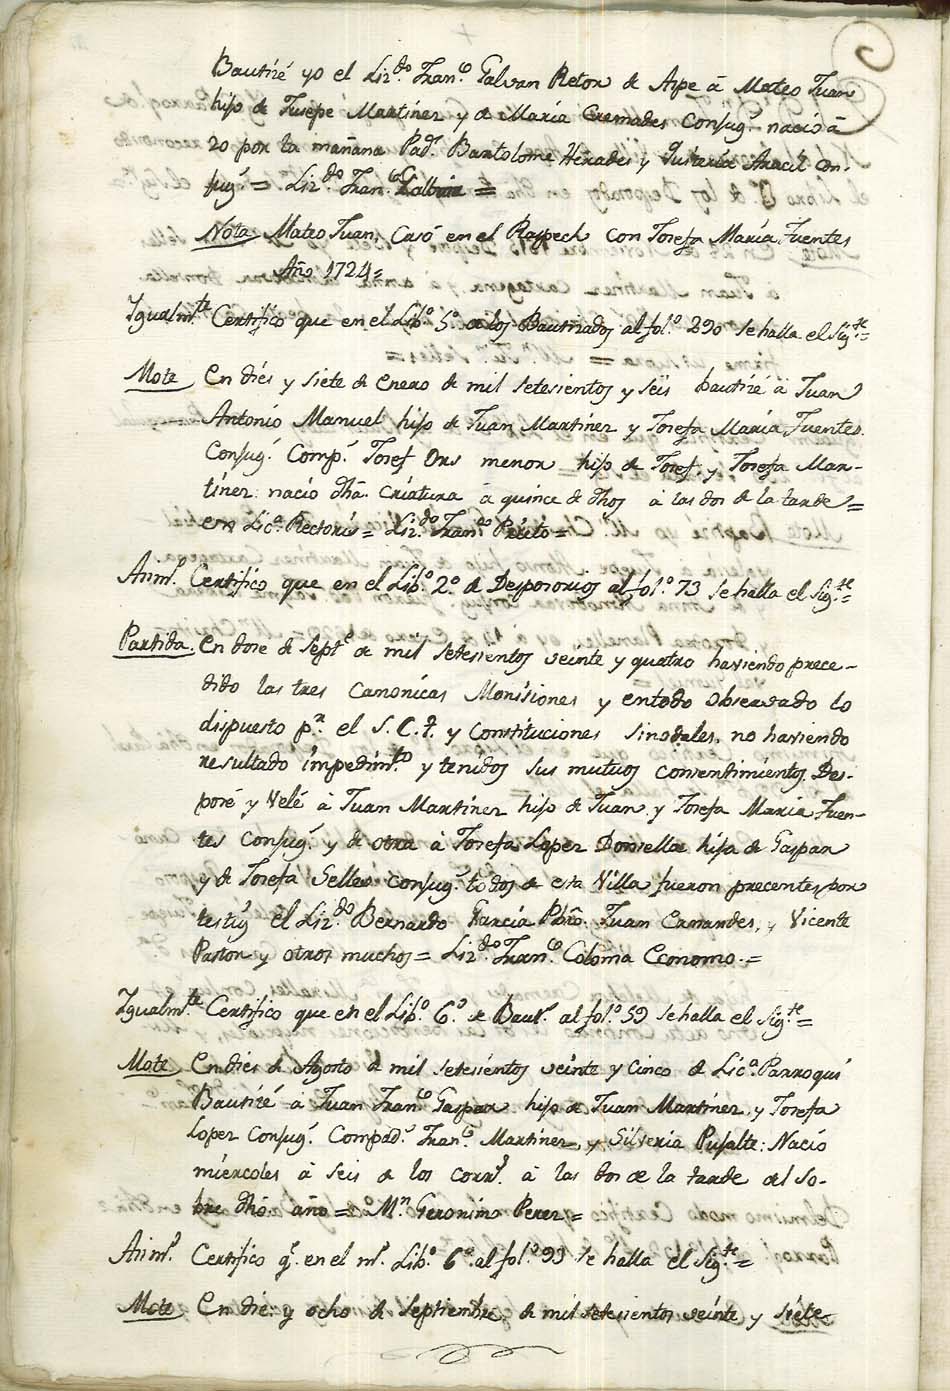 Bautizé yo el Liz.do Fran.co Galvan Retor de Aspe â Mateo Juan
hijo de Jusepe Martinez y de María Cremades Conjug.s nació â
20 por la mañana Pad.s Bartolome Hirades y Aracil con-
jug.s = Liz.do Fran.co =
Nota Mateo Juan Casó en el Raspech con Josefa María Fuentes
Año 1724=
Igualm.te Certifico que en el Lib.o 5.o de los Bautizados al fol.o 290 se halla el Sig.te=
Mote En diés y siete de Enero de mil setesientos y seis bautizé â Juan
Antonio Manuel hijo de Juan Martinez y Josefa María Fuentes
Conjug.s Comp.s Josef Ors menor hijo de Josef, y Josefa Mar-
tinez: nacio dha. Criatura â quince de dhos â las dos de la tarde=
en Lic.a Rectoris= Liz.do Fran.co Perito=
Asim.o Certifico que en el Lib.o 2.o de Desposorios al fol.o 73 se halla el Sig.te=
Partida. En dose de Sept.e de mil setesientos veinte y quatro haviendo prece-
dido las tres Canonicas Monisiones y entodo observado lo
dispuesto p.r el S. C. T. y Constituciones Sinodales, no haviendo
resultado impedim.to y tenidos sus mutuos consentimientos. Des-
posé y Velé â Juan Martinez hijo de Juan y Josefa Maria Fuen-
tes Conjug.s y de otra â Josefa Lopez Donsella hija de Gaspar
y de Josefa Selles Conjug.s todos de esta Villa fueron precentes por
testig.s el Liz.do Bernardo Garcia Pbro. Juan Ernandes, y Vicente
Pastor y otros muchos= Liz.do Fran.co Coloma Economo.=
Igualm.te Certifico que en el Lib.o 6.o de Baut.s al fol.o 59 se halla el Sig.te=
Mote En diés de Agosto de mil setesientos veinte y cinco de Lic.a Parroqui
Bautizé â Juan Fran.co Gaspar hijo de Juan Martinez, y Josefa
Lopez Conjug.s Compad.s Fran.co Martinez, y Silveria Pujalte: Nació
miércoles â seis de los corr.s â las dos de la tarde del So-
bre dho. año= M.n Geronimo Perez=
Asim.o Certifico q.e en el m.o Lib.o 6.o al fol.o 99 se halla el Sig.te=
Mote En die: y ocho de Septiembre, de mil setesientos veinte y siete